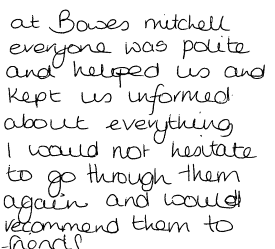 at Bowes mitchell
everyone was polite
and helped us and
kept us informed
about everything,
I would not hesitate
to go through them
again and would
recommend them to
friends